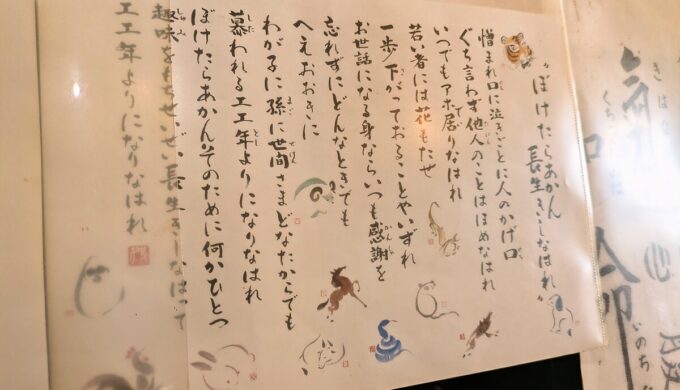 "ぼけたらあかん
長生きしなはれ"
憎まれ口に泣きごとに人のかげ口
ぐち言わず他人のことはほめなはれ
いつでもアホで居りなはれ
若い者には花もたせ
一歩下がっておることやいずれ
お世話になる身ならいつも感謝を
忘れずにどんなときでも
へえおおきに
わが子に孫に世間さまどなたからでも
慕われるエエ年よりになりなはれ
ぼけたらあかんそのために何かひとつ
趣味をもちせいぜい長生きしなはって
エエ年よりになりなはれ
きはな
くち
心
いのち